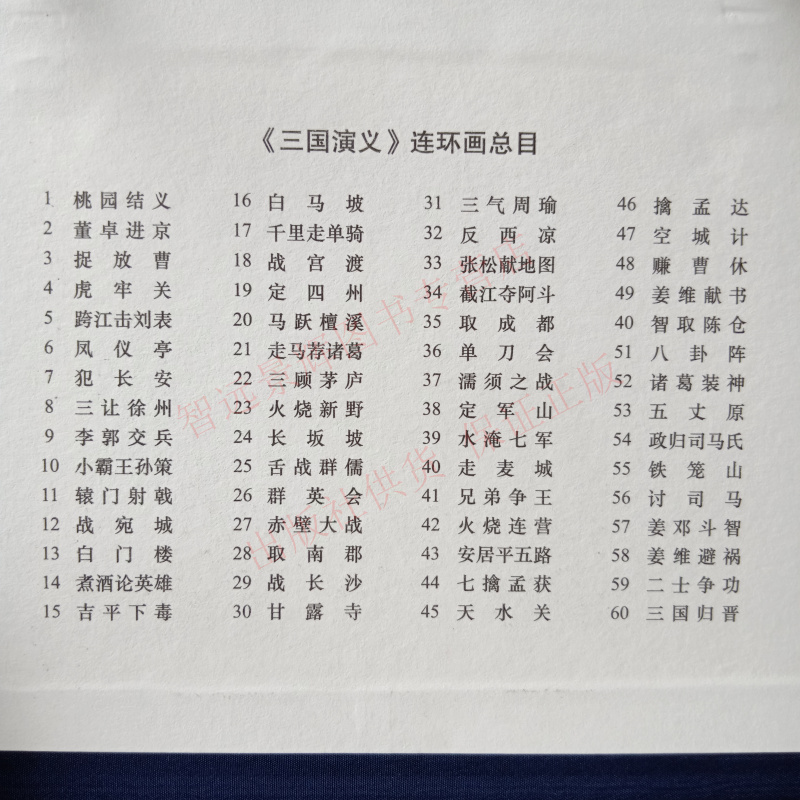 《三国演义》连环画总目
1 桃园结义
2 董卓进京
3 捉放曹
4 虎牢关
5 跨江击刘表
6 凤仪亭
7 犯长安
8 三让徐州
9 李郭交兵
10 小霸王孙策
11 辕门射戟
12 战宛城
13 白门楼
14 煮酒论英雄
15 吉平下毒
16 白马坡
17 千里走单骑
18 战官渡
19 定四州
20 马跃檀溪
21 走马荐诸葛
22 三顾茅庐
23 火烧新野
24 长坂坡
25 舌战群儒
26 群英会
27 赤壁大战
28 取南郡
29 战长沙
30 甘露寺
31 三气周瑜
32 反西凉
33 张松献地图
34 截江夺阿斗
35 取成都
36 单刀会
37 濡须之战
38 定军山
39 水淹七军
40 走麦城
41 兄弟争王
42 火烧连营
43 安居平五路
44 七擒孟获
45 天水关
46 擒孟达
47 空城计
48 赚曹休
49 姜维献书
40 智取陈仓
51 八卦阵
52 诸葛装神
53 五丈原
54 政归司马氏
55 铁笼山
56 讨司马
57 姜邓斗智
58 姜维避祸
59 二士争功
60 三国归晋
智远景辉图书专营店
出版社供货 保证正版